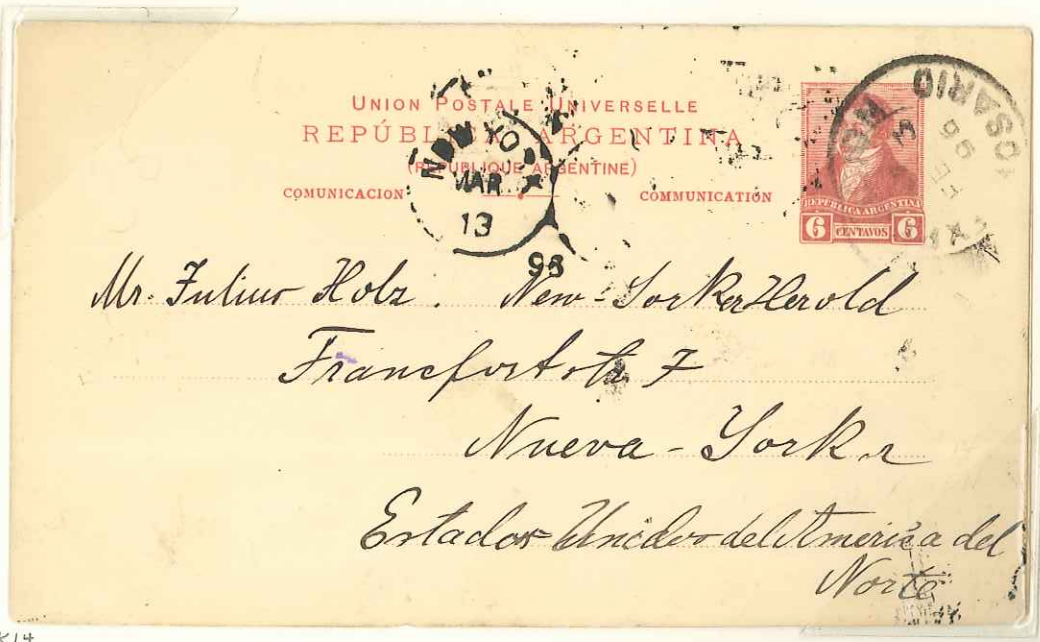 UNION POSTALE UNIVERSELLE
REPÚBLICA ARGENTINA
(RÉPUBLIQUE ARGENTINE)
COMUNICACION
COMMUNICATION
NEW YO
MAR
13
96
ROSARIO
96
REPUBLICA ARGENTINA
6 CENTAVOS 6
Mr. Julius Holz. New-Yorker Herold
Francfortstr 7
Nueva-York
Estados Unidos del America del
Norte
K14